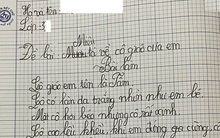 Họ và tên
Lớp: 3
Đề bài: Miêu tả về cô giáo của em
Bài làm
Cô giáo em tên là Tâm
Cô có làn da trắng nhìn như em bé
Mắt cô hơi bé nhưng cô rất xinh
Cô cao lêu khêu, khi em đứng gần cũng